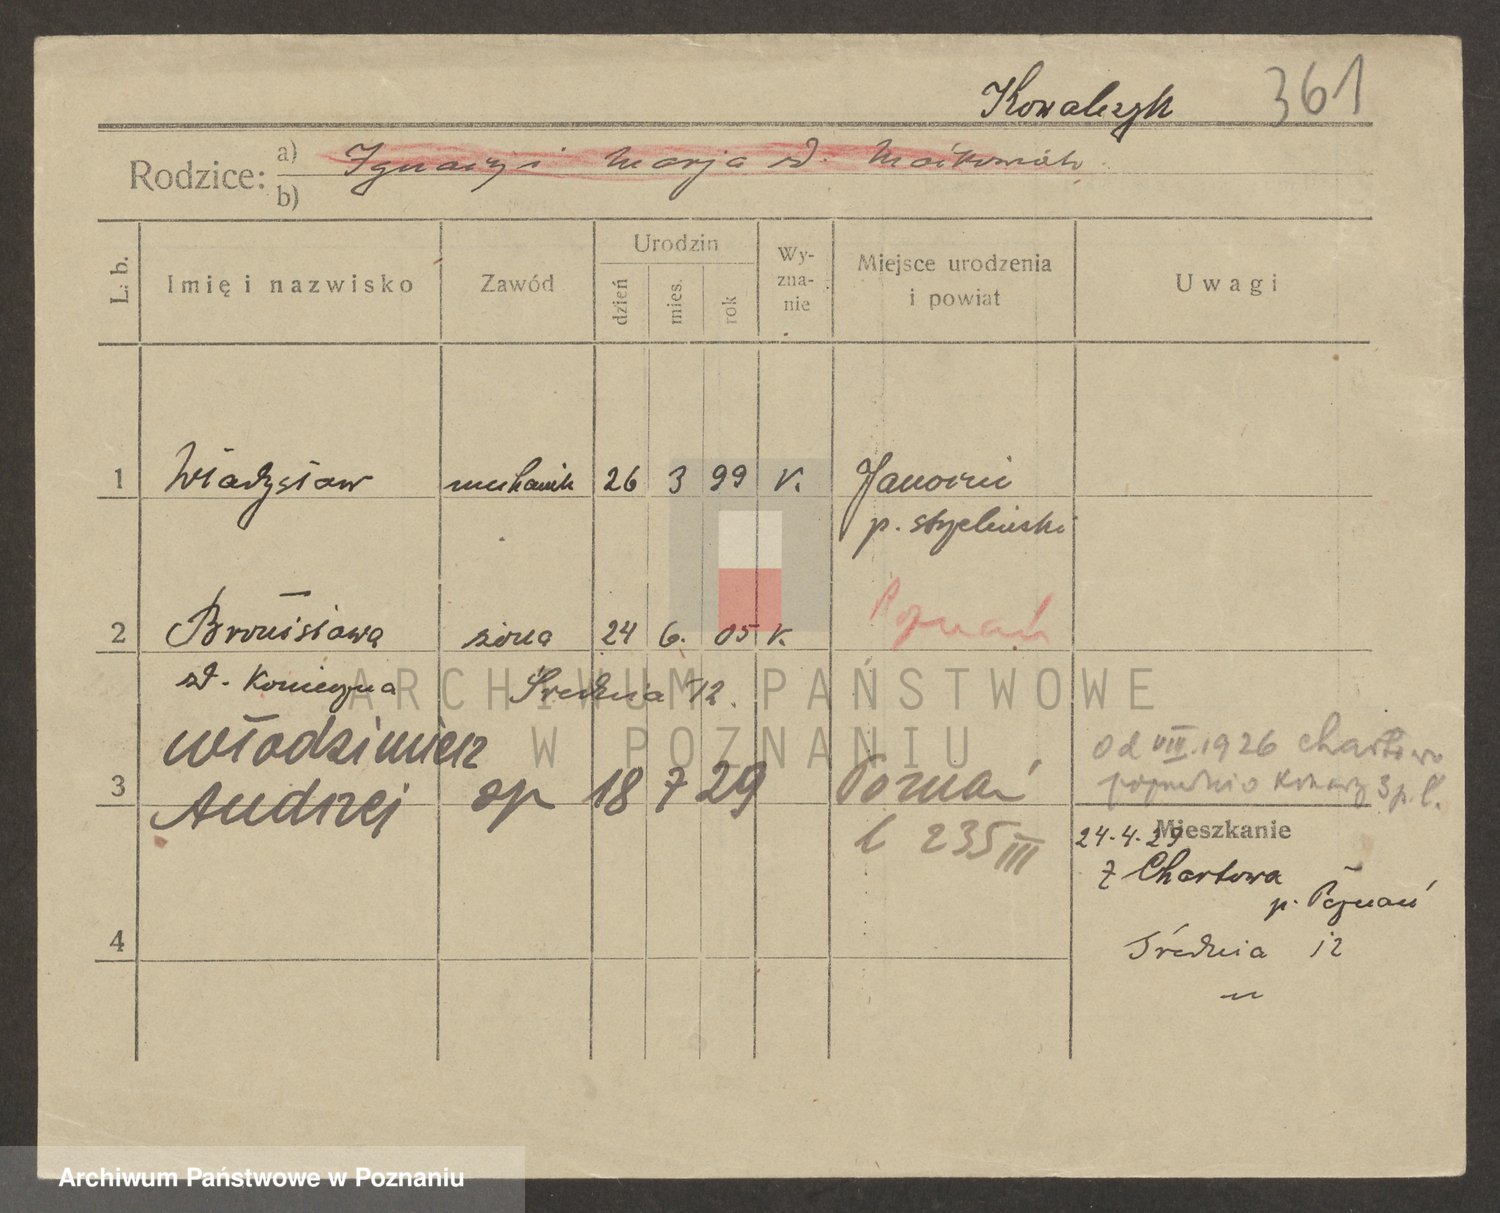 Kowalczyk 361
Rodzice: a) Ignacy i Marja zd.
b)
L. b. Imię i nazwisko Zawód Urodzin dzień mies. rok Wy-zna-nie Miejsce urodzenia i powiat Uwagi
1 Władysław mechanik 26 3 99 k.
p.
Poznań
2 Bronisława żona 24 6. 05 k.
zd. Konieczna Średnia 12.
ARCHIWUM PAŃSTWOWE
W POZNANIU
Włodzimierz
od VIII.1926 Chartowo
3 Andrzej 18 7 29 Poznań
poprzednio
L 235 III
Mieszkanie
24-4-29
z Chartowa
p. Poznań
4 Średnia 12
Archiwum Państwowe w Poznaniu